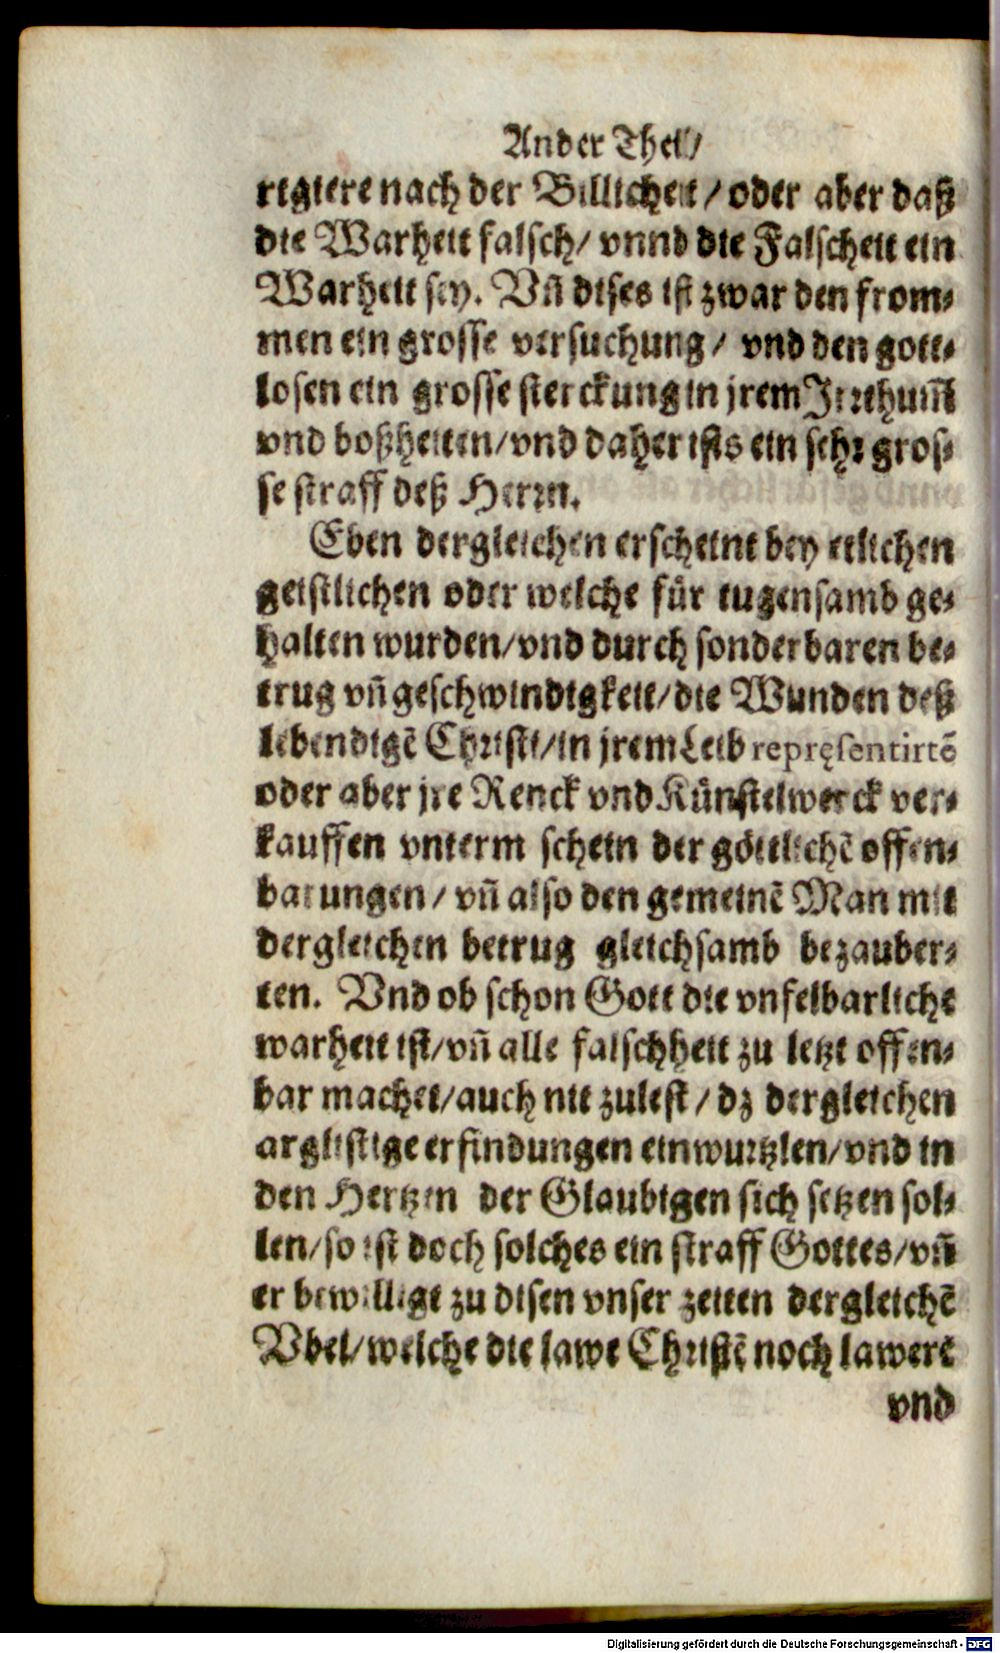 Ander Theil/
regiere nach der Billicheit/ oder aber daß
die Warheit falsch/ vnnd die Falscheit ein
Warheit sey. Vñ dises ist zwar den from⸗
men ein grosse versuchung/ vnd den gott⸗
losen ein grosse sterckung in jrem Irꝛthum̃
vnd boßheiten/ vnd daher ists ein sehꝛ gros⸗
se straff deß Herꝛn.
Eben dergleichen erscheint bey etlichen
geistlichen oder welche für tugensamb ge⸗
halten wurden/ vnd durch sonderbaren be⸗
trug vñ geschwindigkeit/ die Wunden deß
lebendigẽ Chꝛisti/ in jrem Leib repręsentirtẽ
oder aber jre Renck vnd Künstelwerck ver⸗
kauffen vnterm schein der göttlichẽ offen⸗
barungen/ vñ also den gemeinẽ Man mit
dergleichen betrug gleichsamb bezauber⸗
ten. Vnd ob schon Gott die vnfelbarliche
warheit ist/ vñ alle falschheit zu letzt offen⸗
bar machet/ auch nit zulest/ dz dergleichen
arglistige erfindungen einwurtzlen/ vnd in
den Hertzen der Glaubigen sich setzen sol⸗
len/ so ist doch solches ein straff Gottes/ vñ
er bewillige zu disen vnser zeiten dergleichẽ
Vbel/ welche die lawe Chꝛistẽ noch lawerẽ
vnd
Digitalisierung gefördert durch die Deutsche Forschungsgemeinschaft - DFG